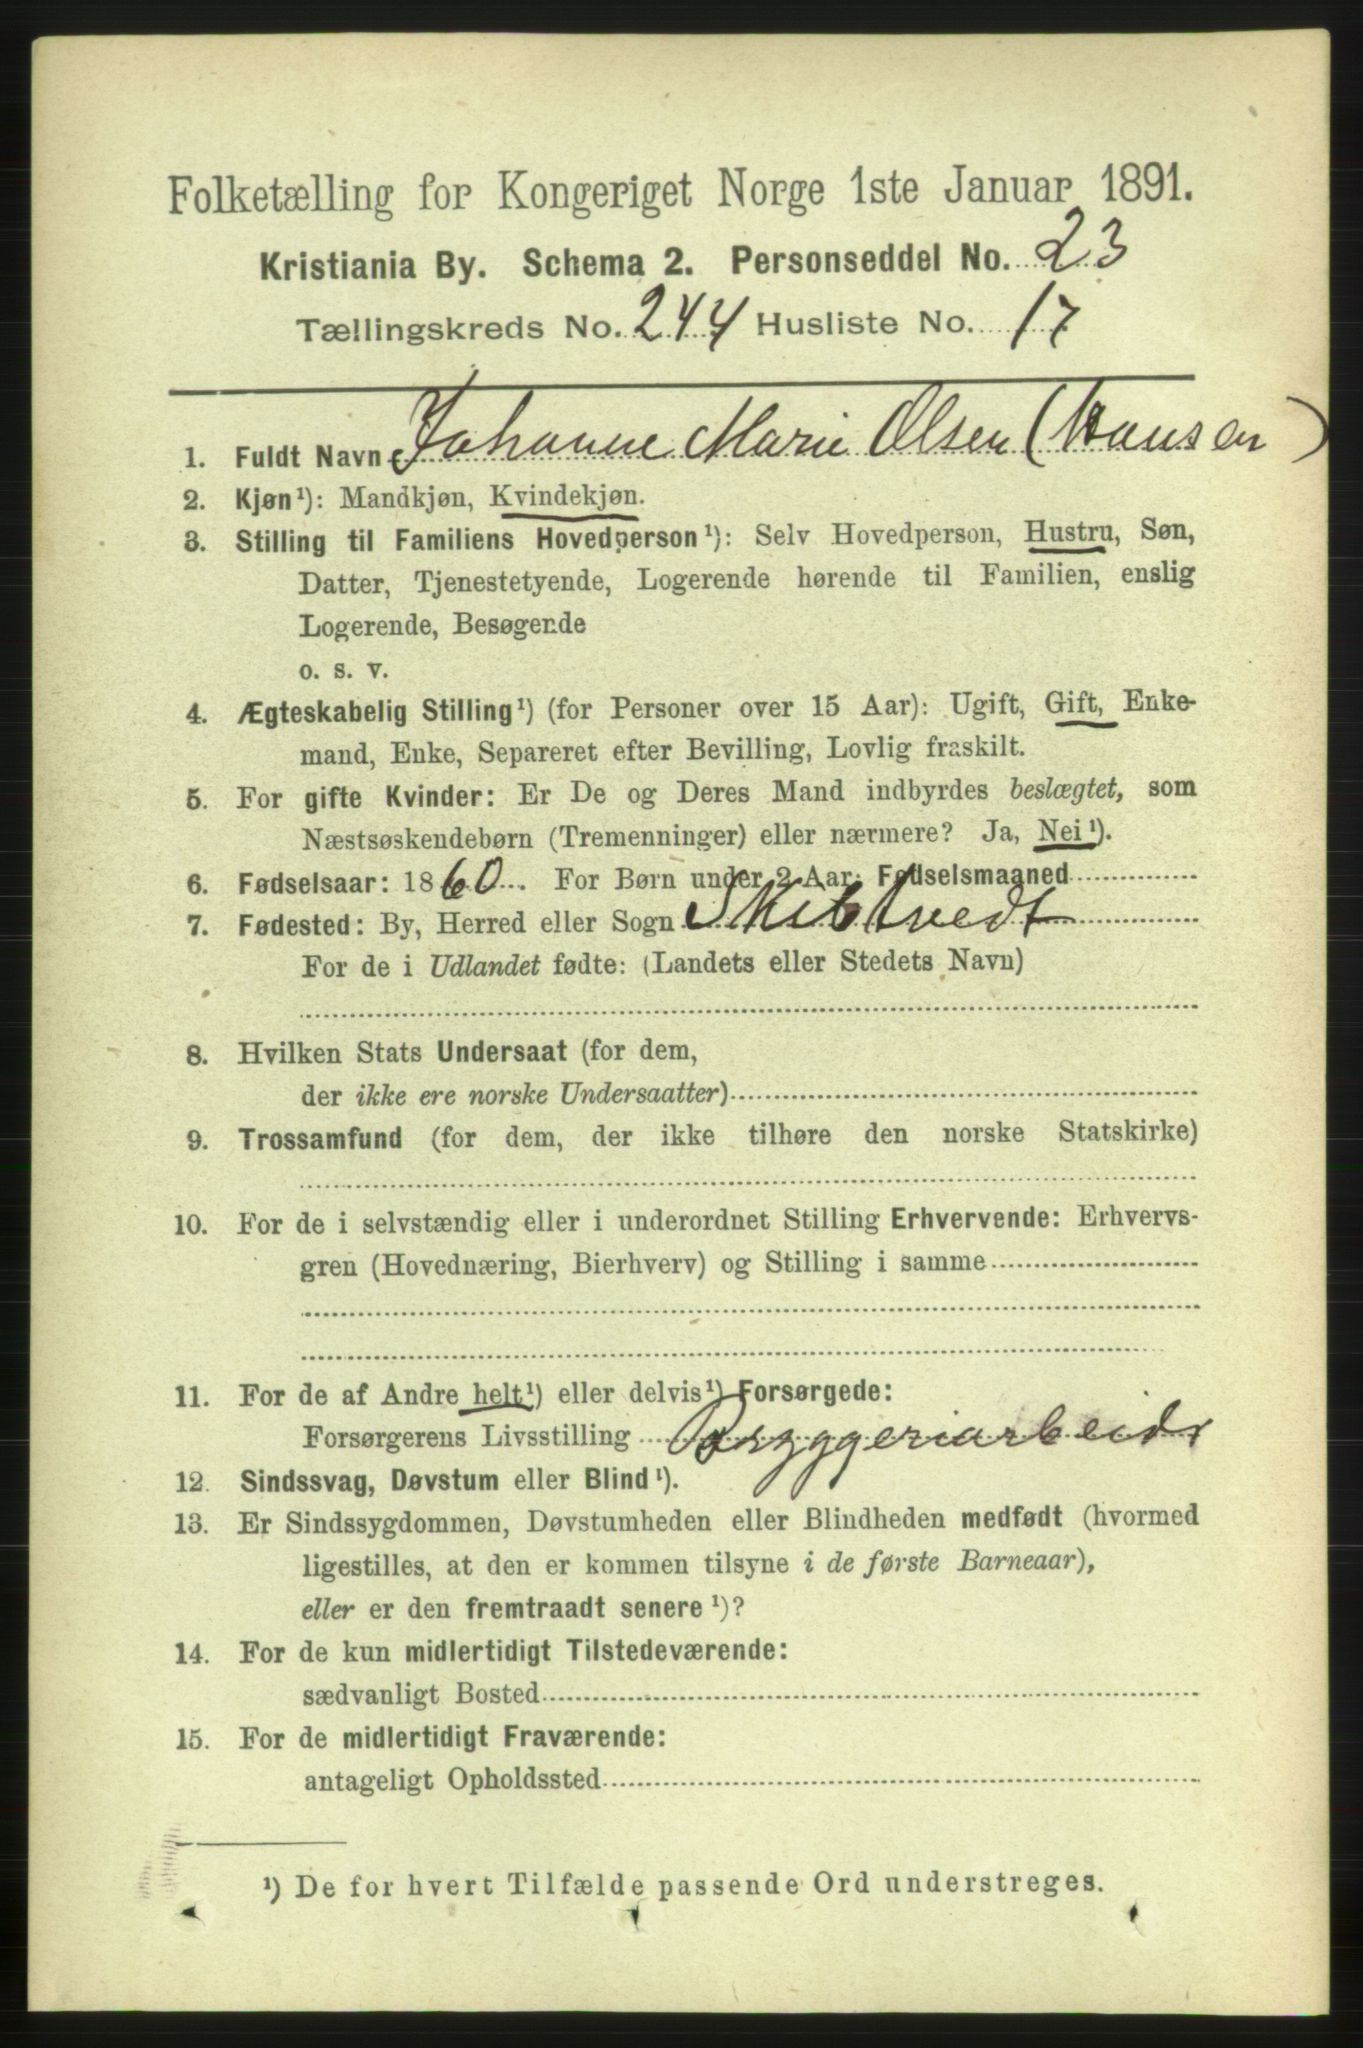 Folketælling for Kongeriget Norge 1ste Januar 1891.
Kristiania By. Schema 2. Personseddel No. 23
Tællingskreds No. 244 Husliste No. 17
1. Fuldt Navn Johanne Marie Olsen (Hansen)
2. Kjøn¹): Mandkjøn, Kvindekjøn.
3. Stilling til Familiens Hovedperson¹): Selv Hovedperson, Hustru, Søn,
Datter, Tjenestetyende, Logerende hørende til Familien, enslig
Logerende, Besøgende
o. s. v.
4. Ægteskabelig Stilling¹) (for Personer over 15 Aar): Ugift, Gift, Enke-
mand, Enke, Separeret efter Bevilling, Lovlig fraskilt.
5. For gifte Kvinder: Er De og Deres Mand indbyrdes beslægtet, som
Næstsøskendebørn (Tremenninger) eller nærmere? Ja, Nei¹).
6. Fødselsaar: 1860. For Børn under 2 Aar: Fødselsmaaned
7. Fødested: By, Herred eller Sogn Skibtvedt
For de i Udlandet fødte: (Landets eller Stedets Navn)
8. Hvilken Stats Undersaat (for dem,
der ikke ere norske Undersaatter)
9. Trossamfund (for dem, der ikke tilhøre den norske Statskirke)
10. For de i selvstændig eller i underordnet Stilling Erhvervende: Erhvervs-
gren (Hovednæring, Bierhverv) og Stilling i samme
11. For de af Andre helt¹) eller delvis¹) Forsørgede:
Forsørgerens Livsstilling Bryggeriarbeidr
12. Sindssvag, Døvstum eller Blind¹).
13. Er Sindssygdommen, Døvstumheden eller Blindheden medfødt (hvormed
ligestilles, at den er kommen tilsyne i de første Barneaar),
eller er den fremtraadt senere¹)?
14. For de kun midlertidigt Tilstedeværende:
sædvanligt Bosted
15. For de midlertidigt Fraværende:
antageligt Opholdssted
¹) De for hvert Tilfælde passende Ord understreges.